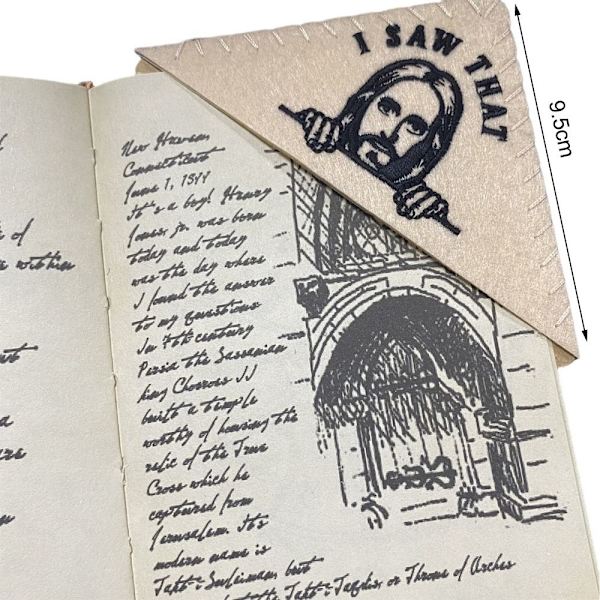 I SAW THAT
9.5cm
of
within
New Haven
Connecticut
June 1, 1899
It's a boy! Henry
Jones, jr. was born
today and today
was the day where
I found the answer
to my questions.
In 7th century
Persia the Sassanian
king Chosroes II
built a temple
worthy of housing the
relic of the True
Cross which he
captured from
Jerusalem. It's
modern name is
Takt-i-Suleiman, but
the Takt-i-Taqdis, or Throne of Arches